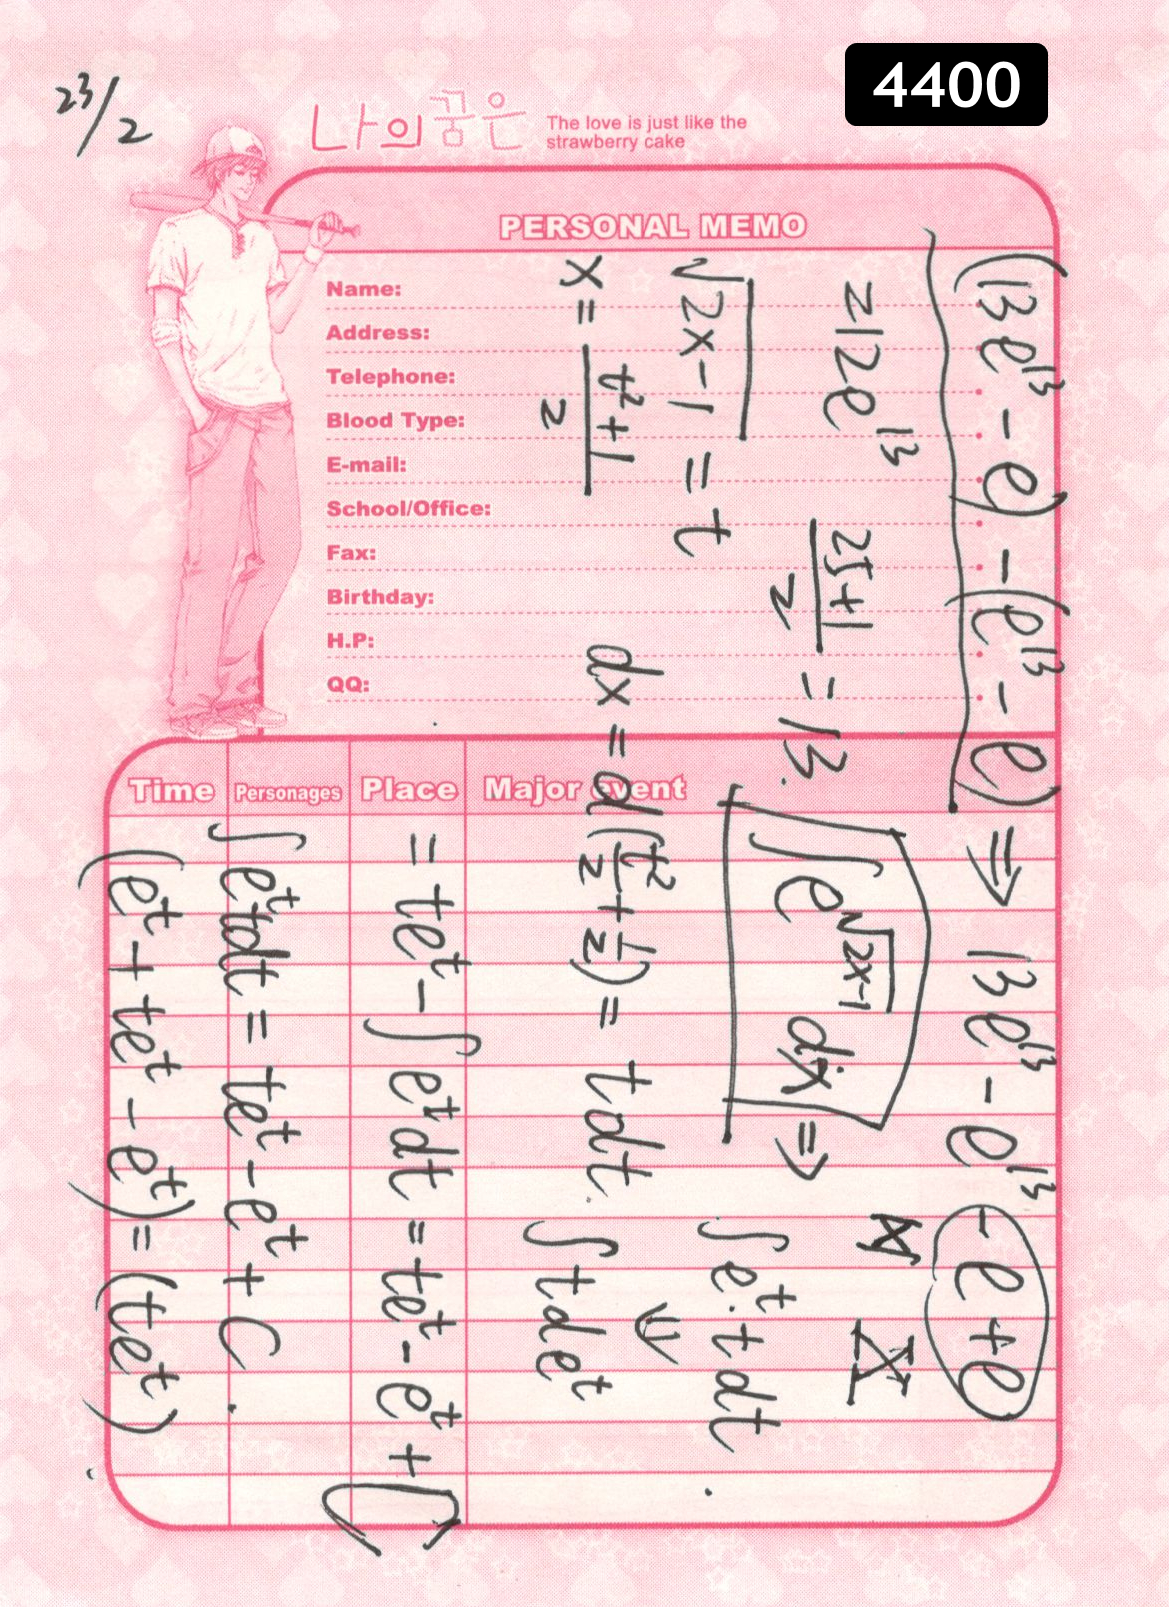 4400
23/2
나의꿈은
The love is just like the
strawberry cake
PERSONAL MEMO
Name:
Address:
Telephone:
Blood Type:
E-mail:
School/Office:
Fax:
Birthday:
H.P:
QQ:
Time Personages Place Major event
(13e^13 - e) - (e^13 - e) ⇒ 13e^13 - e^13 - e + e
=12e^13
(25+1)/2 = 13.
∫e^√(2x-1) dx ⇒
√(2x-1) = t
∫e^t·tdt.
⇓
x = (t²+1)/2
dx = d(t²/2 + 1/2) = tdt.
∫tde^t
= te^t - ∫e^t dt = te^t - e^t + C
∫e^t dt = te^t - e^t + C.
(e^t + te^t - e^t) = (te^t)